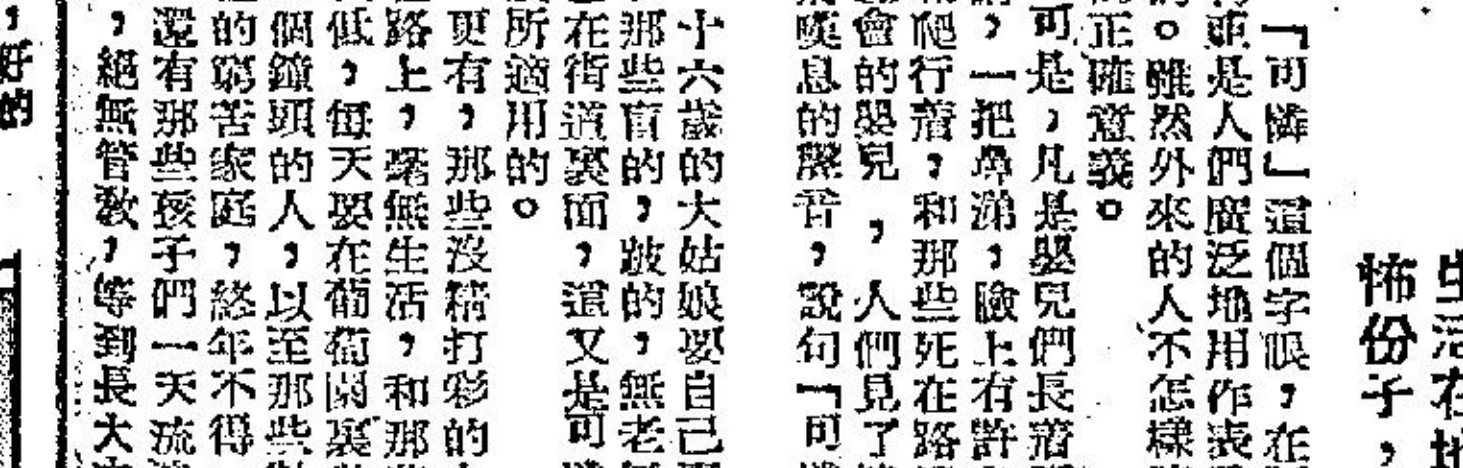 生活在地
怖份子，
「可憐」這個字眼，在
更是人們廣泛地用作表
。雖然外來的人不怎樣
正確意義。
可是，凡是嬰兒們長着
，一把鼻涕，臉上有許
爬行着，和那些死在路
會的嬰兒，人們見了
嘆息的聲音，說句「可
十六歲的大姑娘要自己
那些盲的，跛的，無老
在街道裏面，這又是可
所適用的。
更有，那些沒精打彩的
路上，毫無生活，和那
低，每天要在葡萄園裏
個鐘頭的人，以至那些
的窮苦家庭，終年不得
還有那些孩子們一天流
，絕無管教，等到長大
，好的